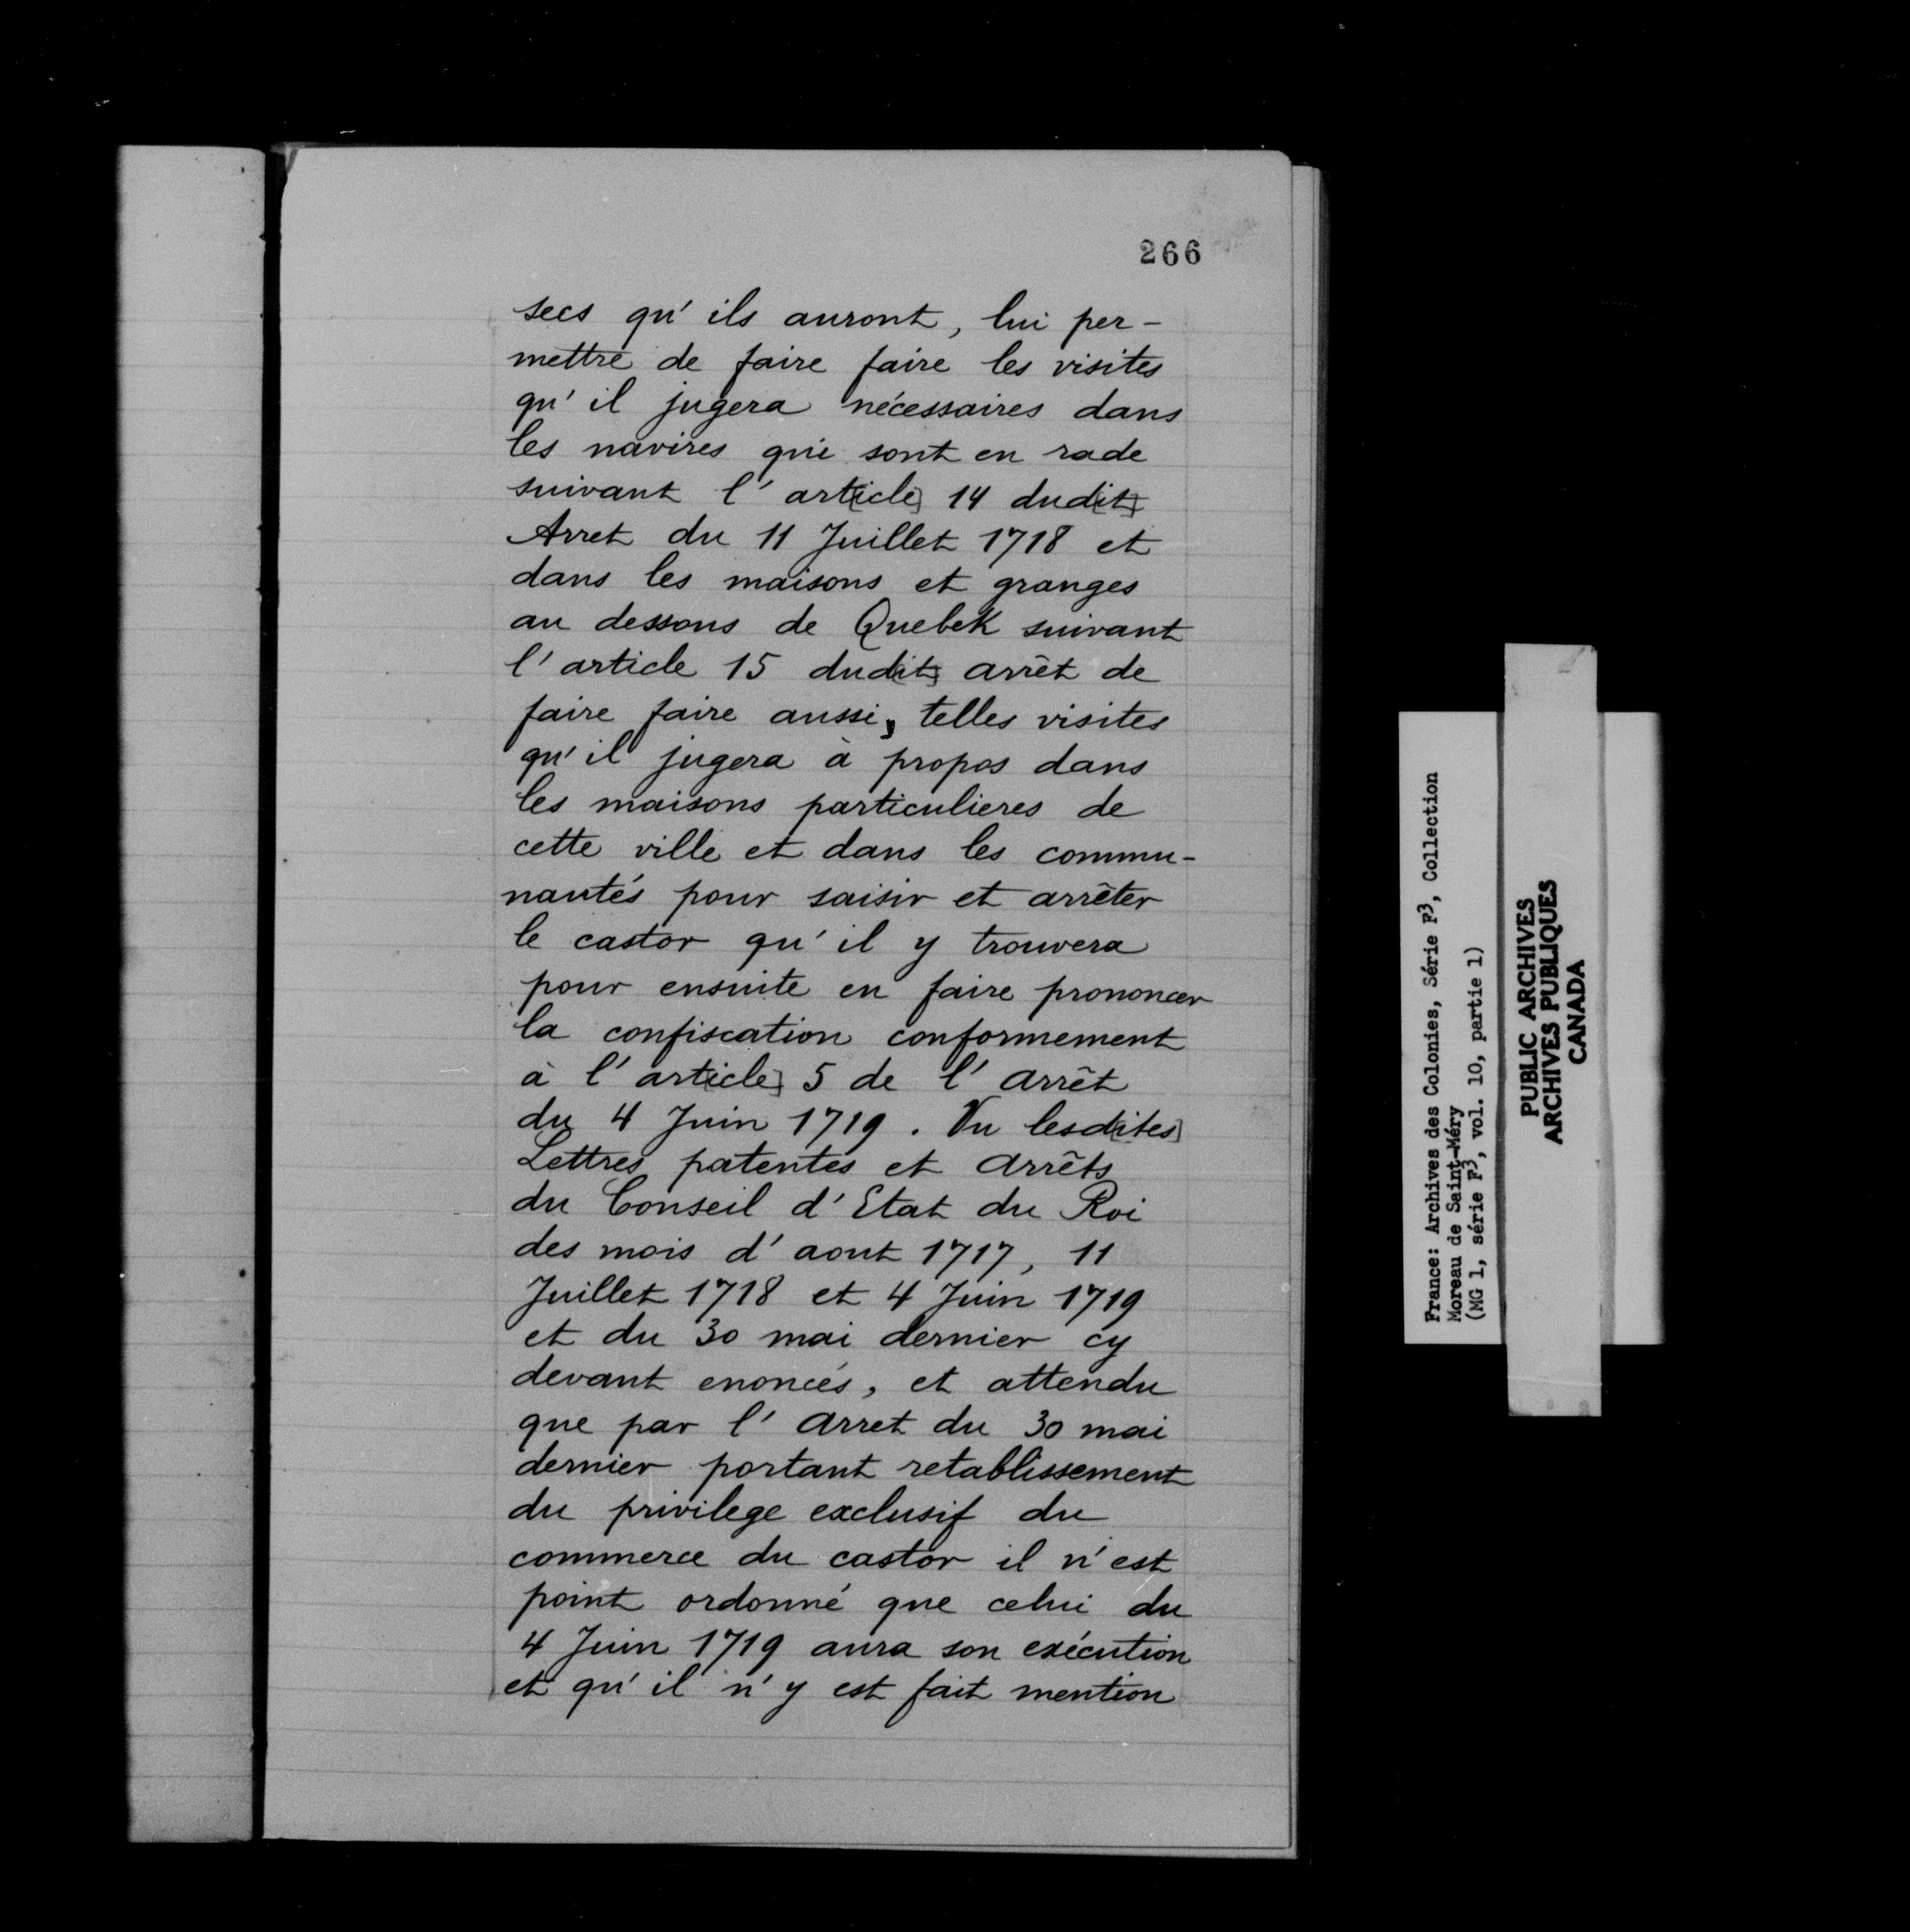 266
secs qu'ils auront, lui per-
mettre de faire faire les visites
qu'il jugera nécessaires dans
les navires qui sont en rade
suivant l'art[icle] 14 dud[it]
Arret du 11 Juillet 1718 et
dans les maisons et granges
au dessous de Quebek suivant
l'article 15 dud[it] arrêt de
faire faire aussi, telles visites
qu'il jugera à propos dans
les maisons particulieres de
cette ville et dans les commu-
nautés pour saisir et arrêter
le castor qu'il y trouvera
pour ensuite en faire prononcer
la confiscation conformement
à l'art[icle] 5 de l'arrêt
du 4 Juin 1719. Vu lesd[ites]
Lettres patentes et arrêts
du Conseil d'Etat du Roi
des mois d'aout 1717, 11
Juillet 1718 et 4 Juin 1719
et du 30 mai dernier cy
devant enoncés, et attendu
que par l'arret du 30 mai
dernier portant retablissement
du privilege exclusif du
commerce du castor il n'est
point ordonné que celui du
4 Juin 1719 aura son exécution
et qu'il n'y est fait mention
France: Archives des Colonies, Série F3, Collection
Moreau de Saint-Méry
(MG 1, série F3, vol. 10, partie 1)
PUBLIC ARCHIVES
ARCHIVES PUBLIQUES
CANADA